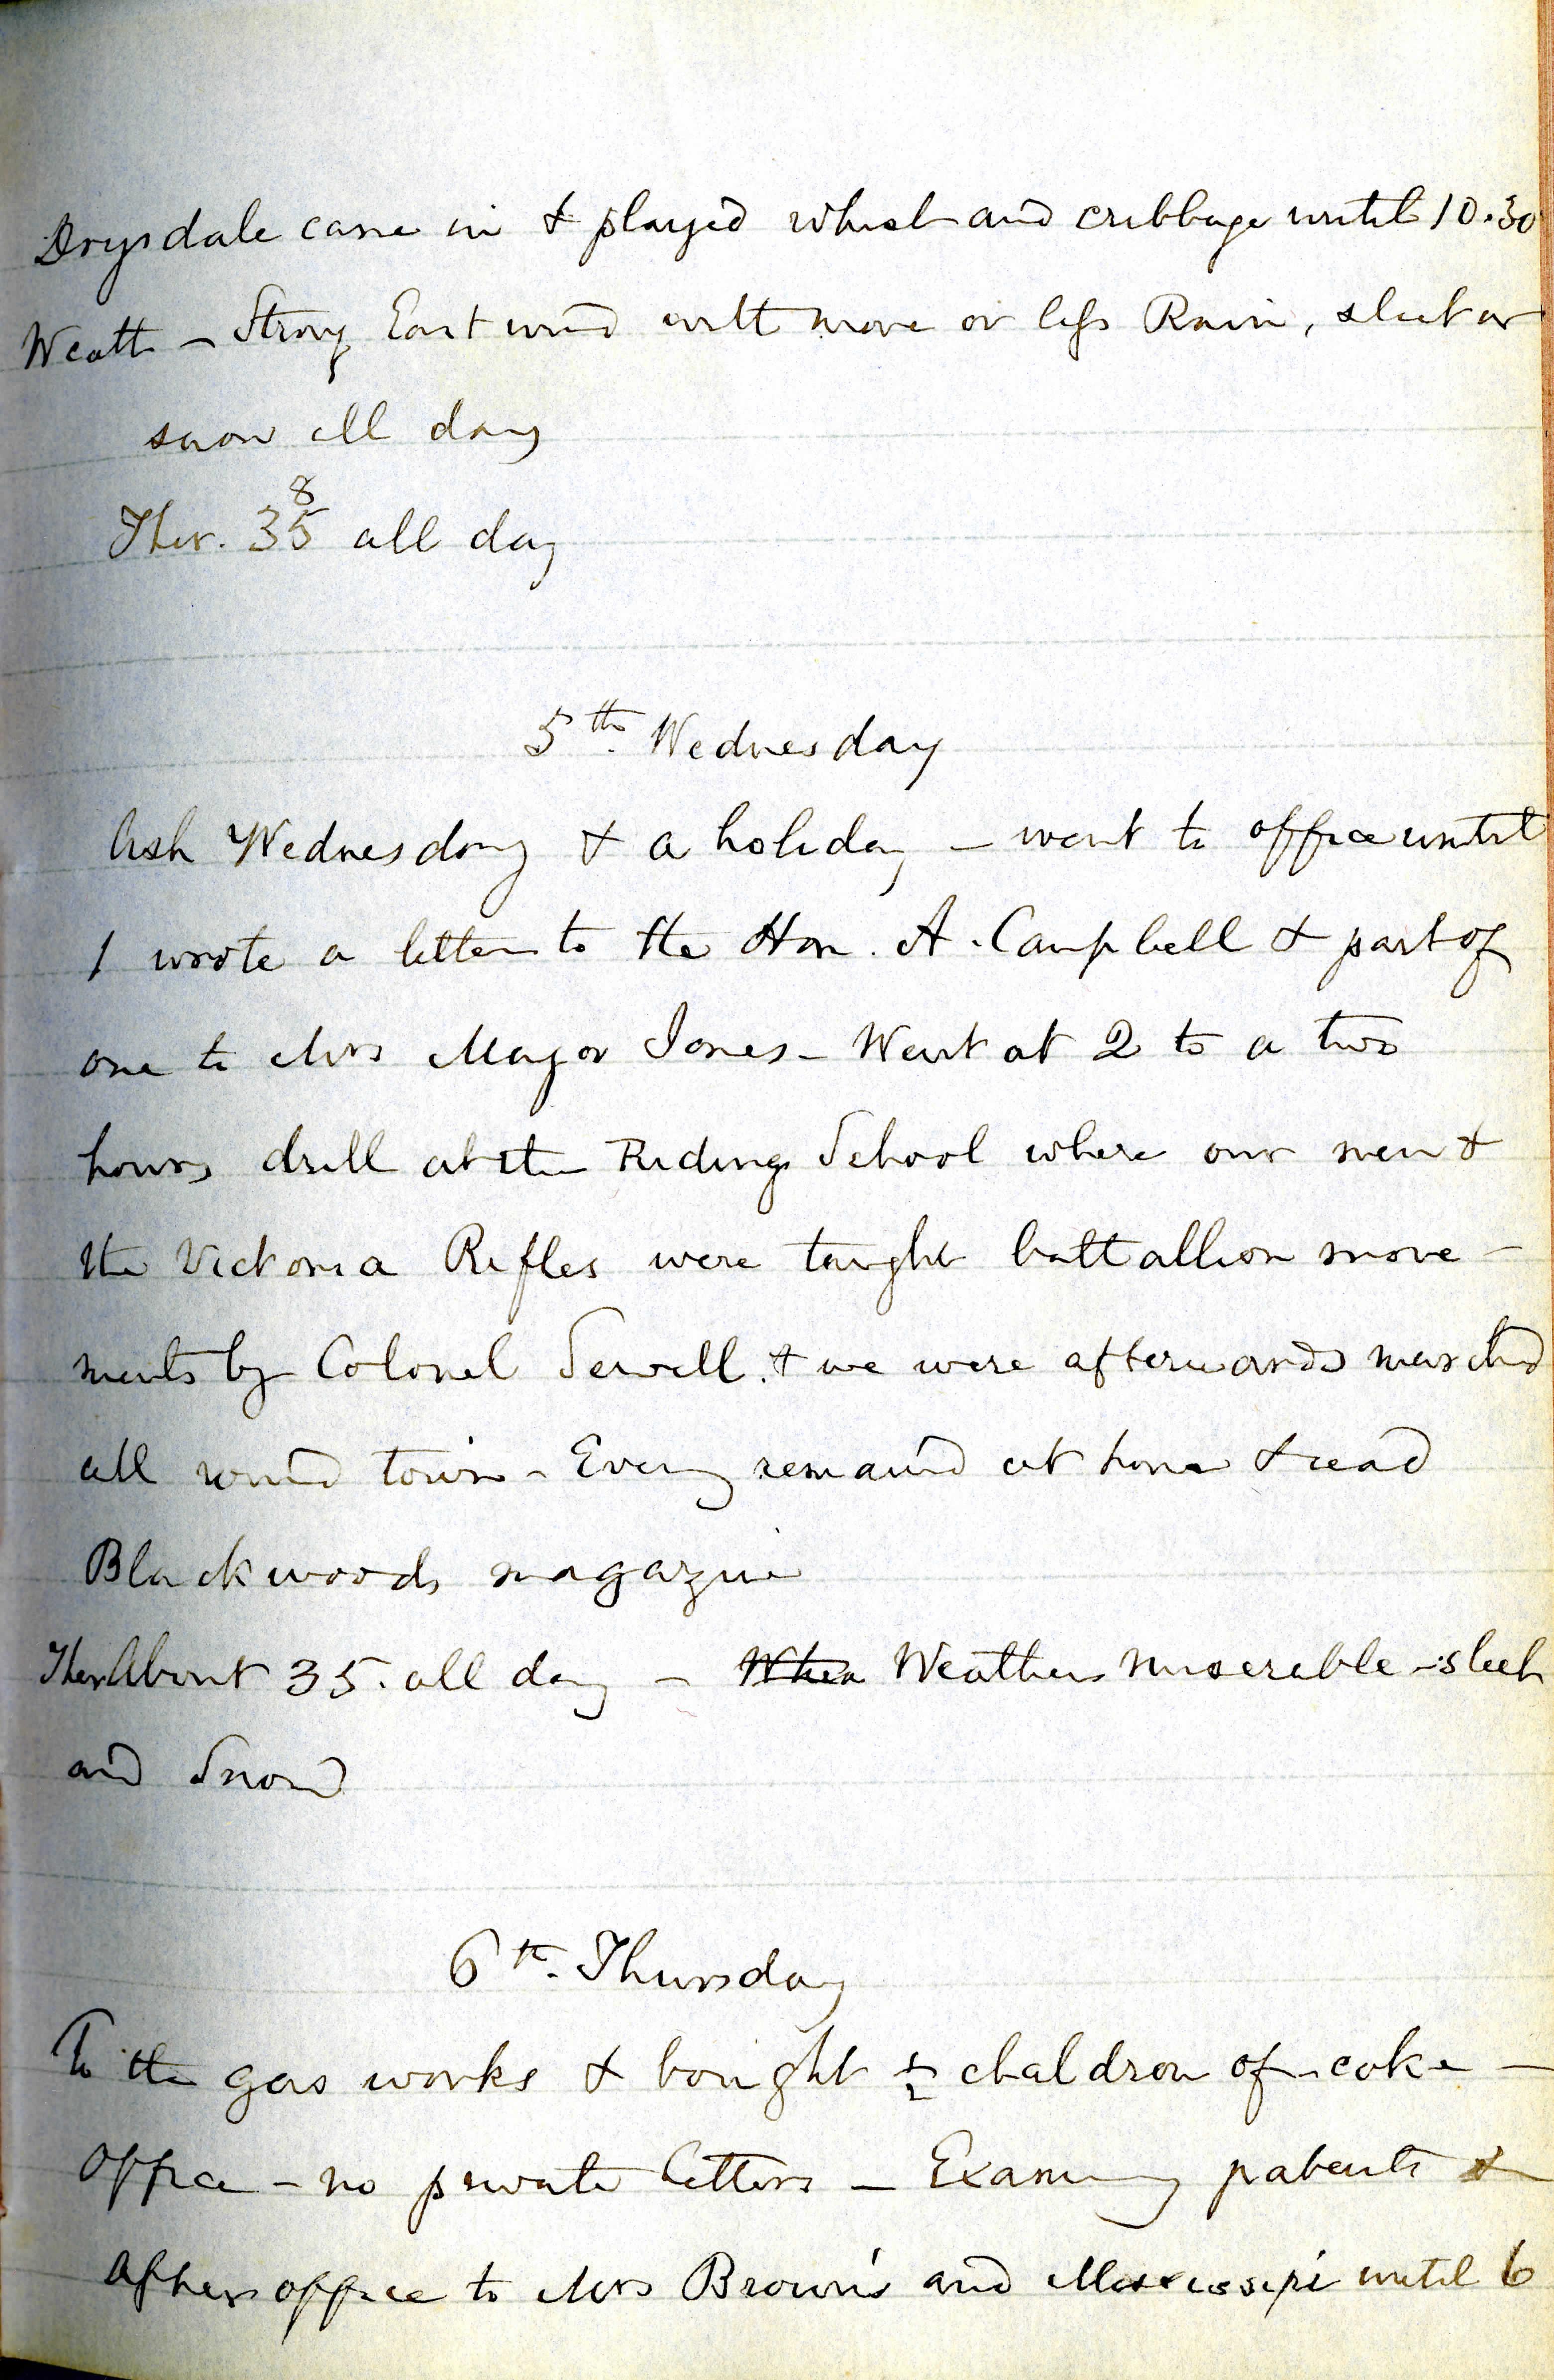 Drysdale came in & played whist and cribbage until 10.30
Weath - Strong East wind with more or less Rain, sleet or
snow all day
8
Ther. 35 all day
5th. Wednesday
Ash Wednesday & a holiday - went to office until
1 wrote a letter to the Hon. A. Campbell & part of
one to Mrs Major Jones - Went at 2 to a two
hours drill at the Riding School where our men &
the Victoria Rifles were taught battallion move-
ments by Colonel Sewell. & we were afterwards marched
all round town - Eveng remained at home & read
Blackwoods magazine
Ther About 35. all day - When Weather miserable - sleet
and Snow
6th. Thursday
To the gas works & bought ½ chaldron of coke -
Office - no private letters - Examing patents &
After office to Mrs Brown's and until 6